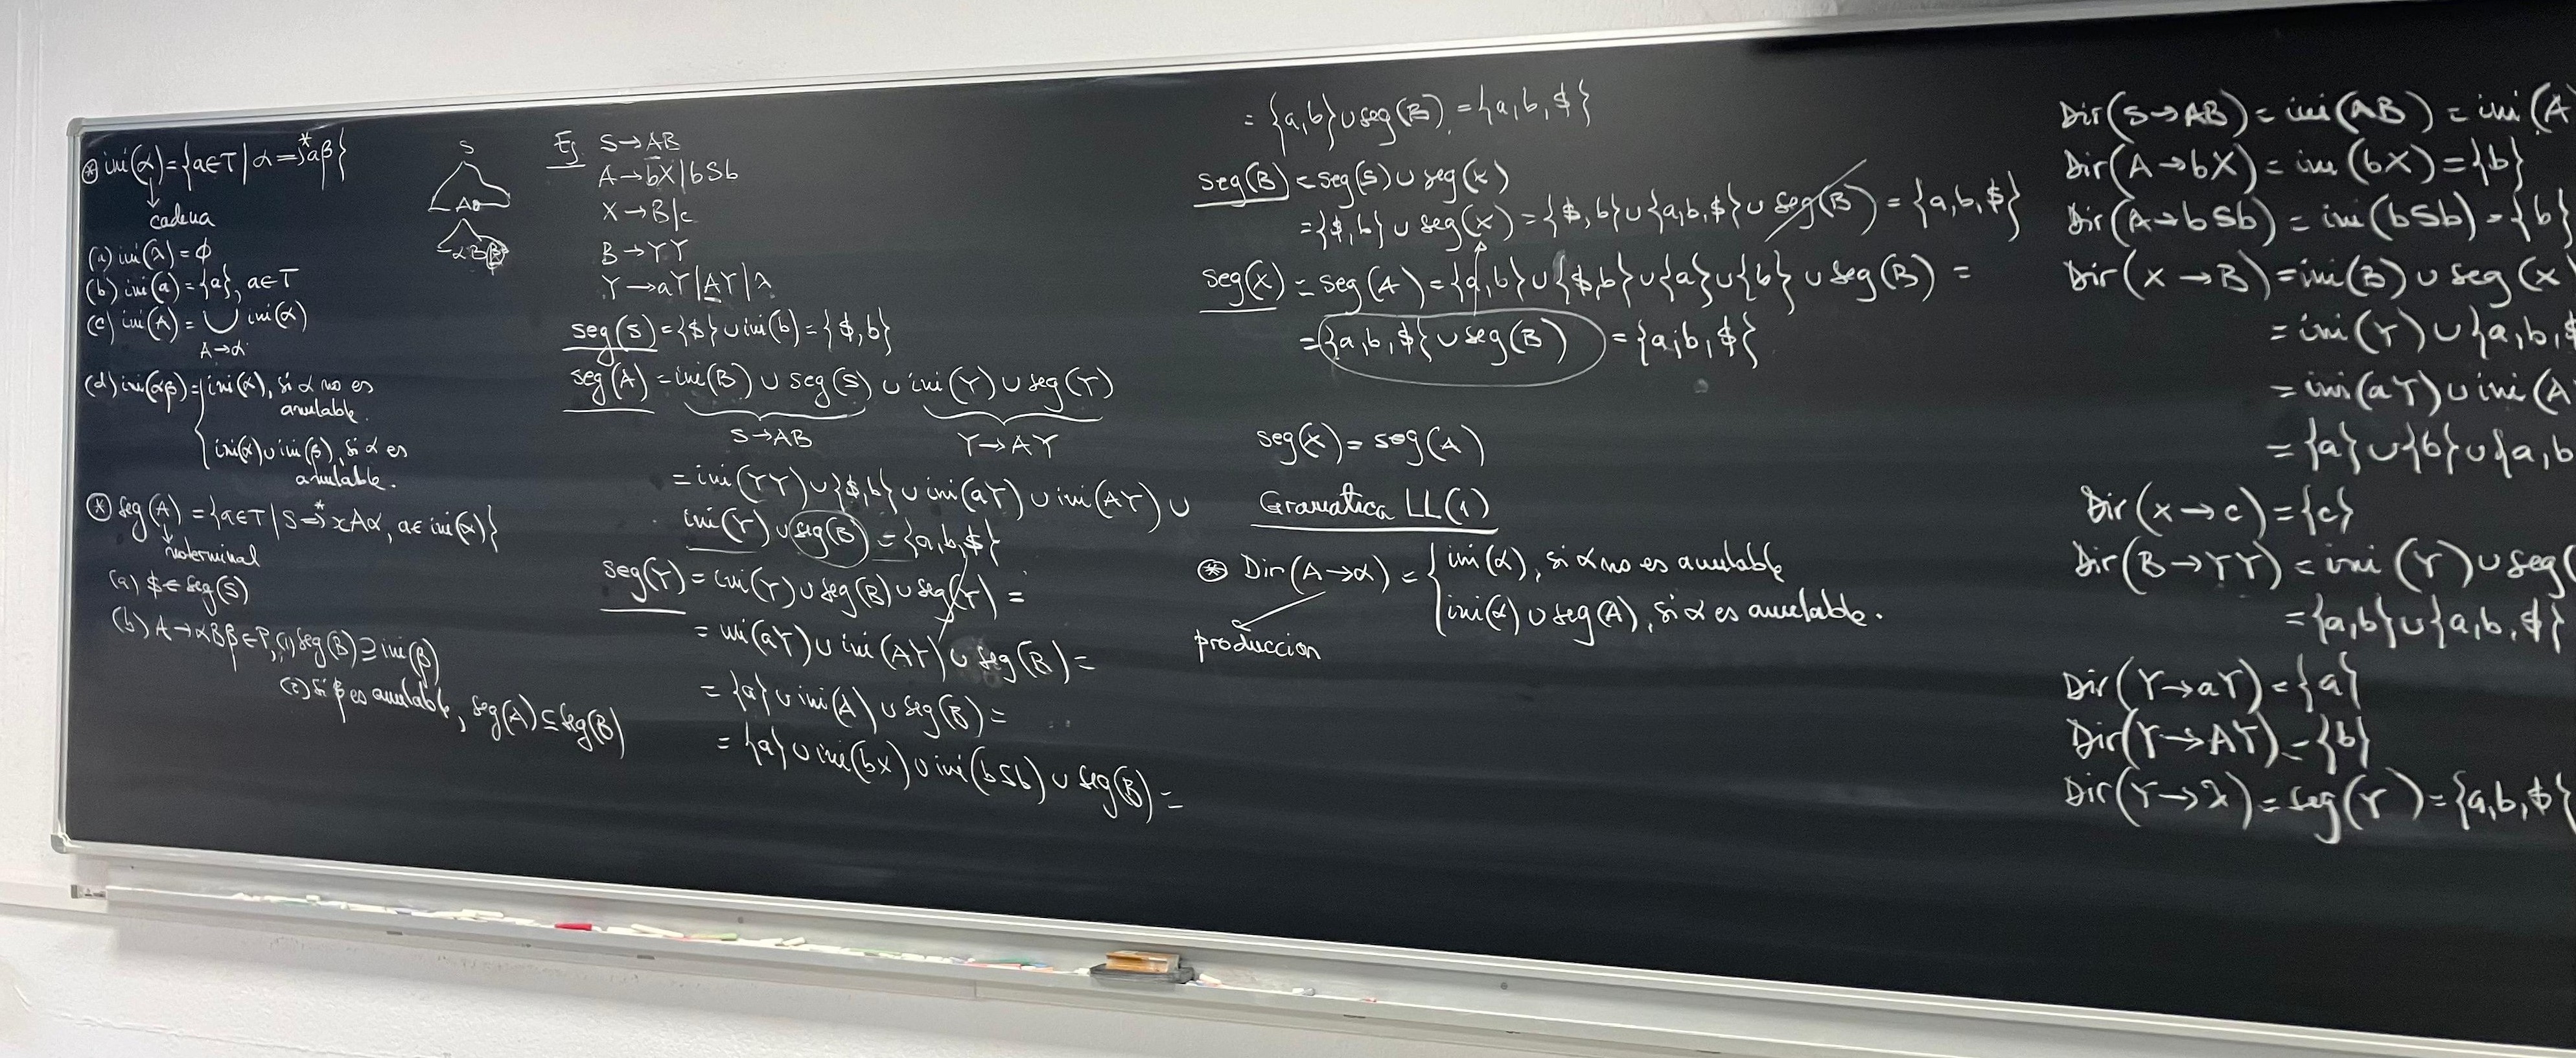 ⊛ ini(α)={a∈T | α ⇒* aβ}
↓
cadena
(a) ini(λ)=ϕ
(b) ini(a)={a}, a∈T
(c) ini(A)= ∪ ini(α)
A→α
(d) ini(αβ)={ini(α), si α no es
anulable.
ini(α)∪ini(β), si α es
anulable.
⊛ seg(A)={a∈T | S⇒* xAα, a∈ini(α)}
↓
noterminal
(a) $∈seg(S)
(b) A→αBβ∈P, (1) seg(B)⊇ini(β)
(2) Si β es anulable, seg(A)⊆seg(B)
S
Aa
αBβ
Ej S→AB
A→bX|bSb
X→B|c
B→YY
Y→aY|AY|λ
seg(S)={$}∪ini(b)={$,b}
seg(A)=ini(B)∪seg(S)∪ini(Y)∪seg(Y)
S→AB Y→AY
=ini(YY)∪{$,b}∪ini(aY)∪ini(AY)∪
ini(Y)∪seg(B)={a,b,$}
seg(Y)=ini(Y)∪seg(B)∪seg(Y)=
=ini(aY)∪ini(AY)∪seg(B)=
={a}∪ini(A)∪seg(B)=
={a}∪ini(bX)∪ini(bSb)∪seg(B)=
={a,b}∪seg(B)={a,b,$}
seg(B)=seg(S)∪seg(X)
={$,b}∪seg(X)={$,b}∪{a,b,$}∪seg(B)={a,b,$}
seg(X)=seg(A)={a,b}∪{$,b}∪{a}∪{b}∪seg(B)=
={a,b,$}∪seg(B)={a,b,$}
seg(X)=seg(A)
Gramatica LL(1)
⊛ Dir(A→α)={ini(α), si α no es anulable
ini(α)∪seg(A), si α es anulable.
produccion
Dir(S→AB)=ini(AB)=ini(A
Dir(A→bX)=ini(bX)={b}
Dir(A→bSb)=ini(bSb)={b}
Dir(X→B)=ini(B)∪seg(X)
=ini(Y)∪{a,b,$
=ini(aY)∪ini(A
={a}∪{b}∪{a,b
Dir(X→c)={c}
Dir(B→YY)=ini(Y)∪seg(
={a,b}∪{a,b,$}
Dir(Y→aY)={a}
Dir(Y→AY)={b}
Dir(Y→λ)=seg(Y)={a,b,$}